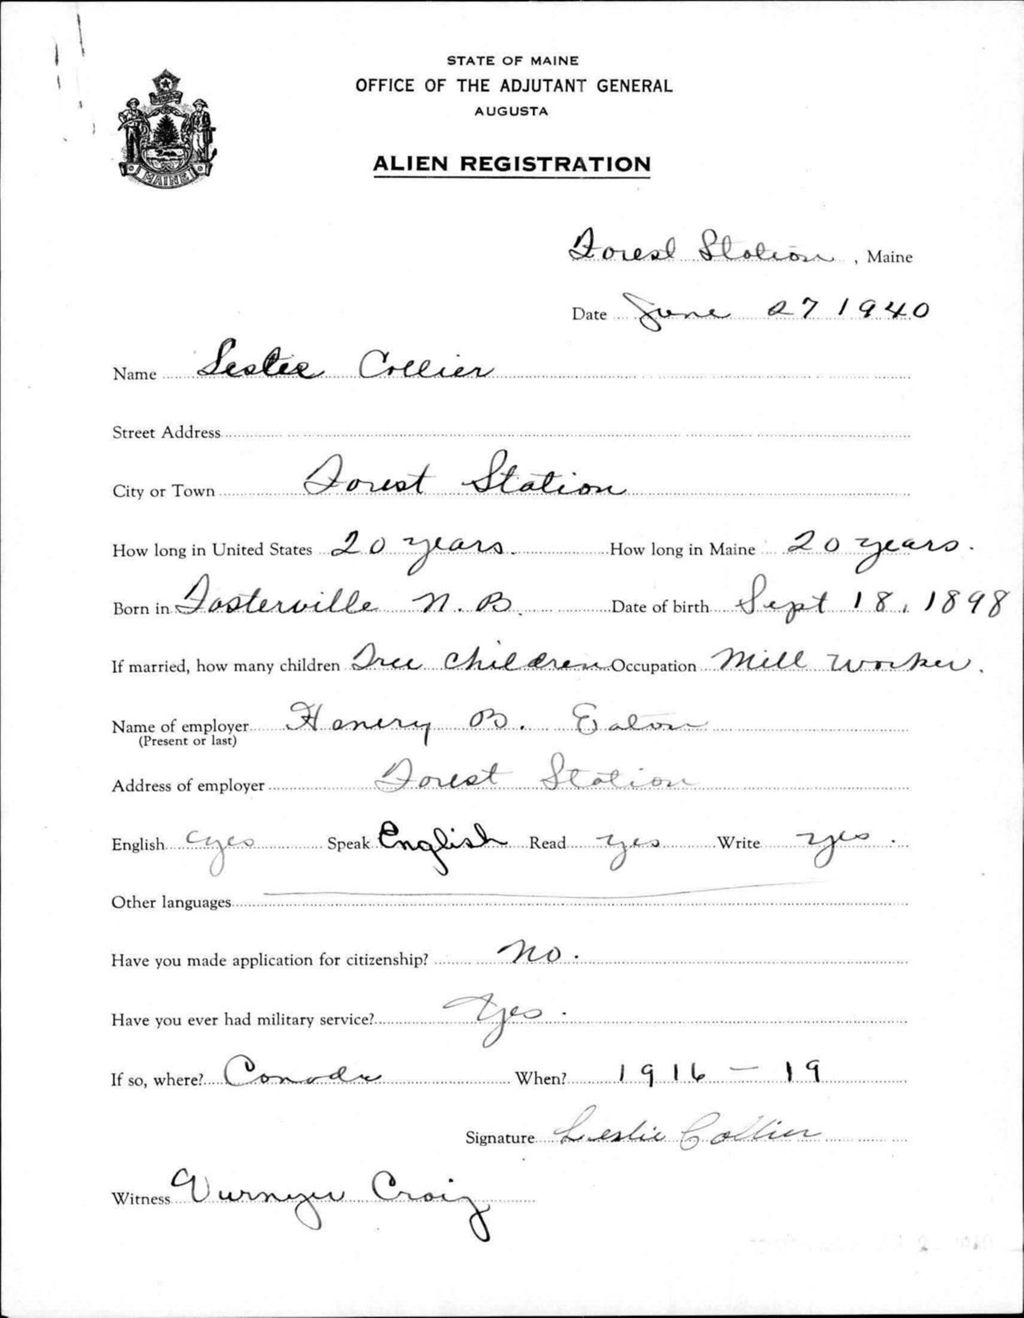 STATE OF MAINE
OFFICE OF THE ADJUTANT GENERAL
AUGUSTA
MAINE
ALIEN REGISTRATION
Forest Station, Maine
Date June 27 1940
Name Leslie Collier
Street Address
City or Town Forest Station
How long in United States 20 years. How long in Maine 20 years.
Born in Fosterville N.B. Date of birth Sept 18, 1898
If married, how many children Tree children Occupation Mill worker.
Name of employer Hanery B. Eaton
(Present or last)
Address of employer Forest Station
English Yes Speak English Read yes Write yes.
Other languages
Have you made application for citizenship? No.
Have you ever had military service? Yes.
If so, where? Canada When? 1916 - 19
Signature Leslie Collier
Witness Craig